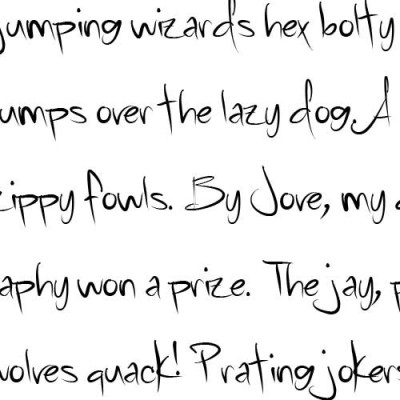 jumping wizards hex bolty
umps over the lazy dog. A
zippy fowls. By Jove, my
aphy won a prize. The jay, p
wolves quack! Prating jokers